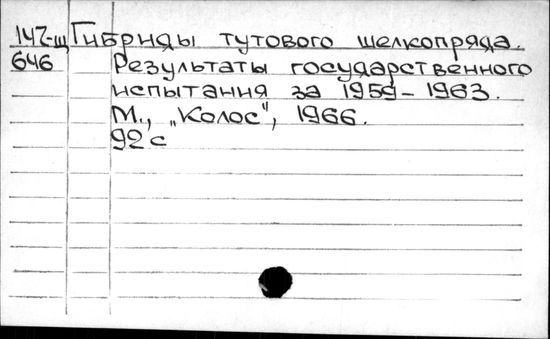 147-щ Гибриды тутового шелкопряда.
646 Результаты государственного
испытания за 1959-1963.
М., „Колос", 1966.
92 с